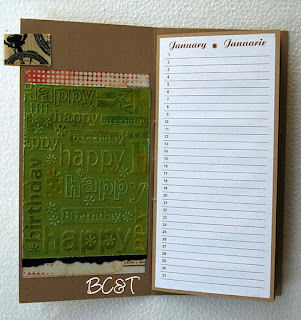 January * Januarie
1
2
3
4
5
6
7
8
9
10
11
12
13
14
15
16
17
18
19
20
21
22
23
24
25
26
27
28
29
30
31
Happy
happy birthday
Birthday
happy
birthday
happy
Birthday
happy
BC&T